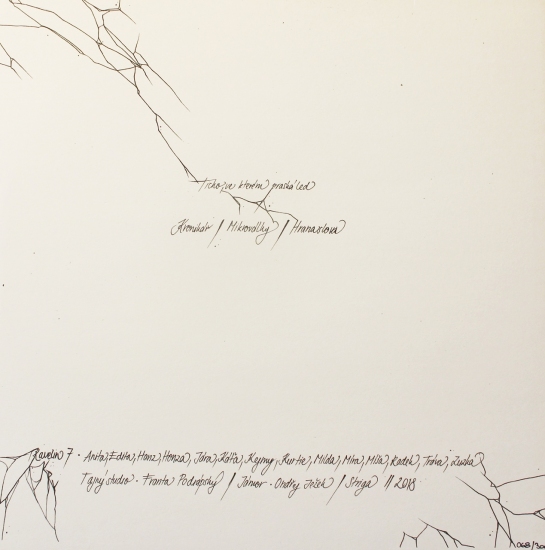 Ticho, ve kterém praská led
Kronikář / Mikroválky / Hranaslova
Ravelin 7 · Anita, Edita, Hanz, Honza, Jára, Káťa, Kejmy, Kurtie, Milda, Míra, Míla, Radek, Tráva, Zuzka
Tajný studio · Franta Podzápský / Jámor · Ondřej Ježek / Stryga // 2018
068/300